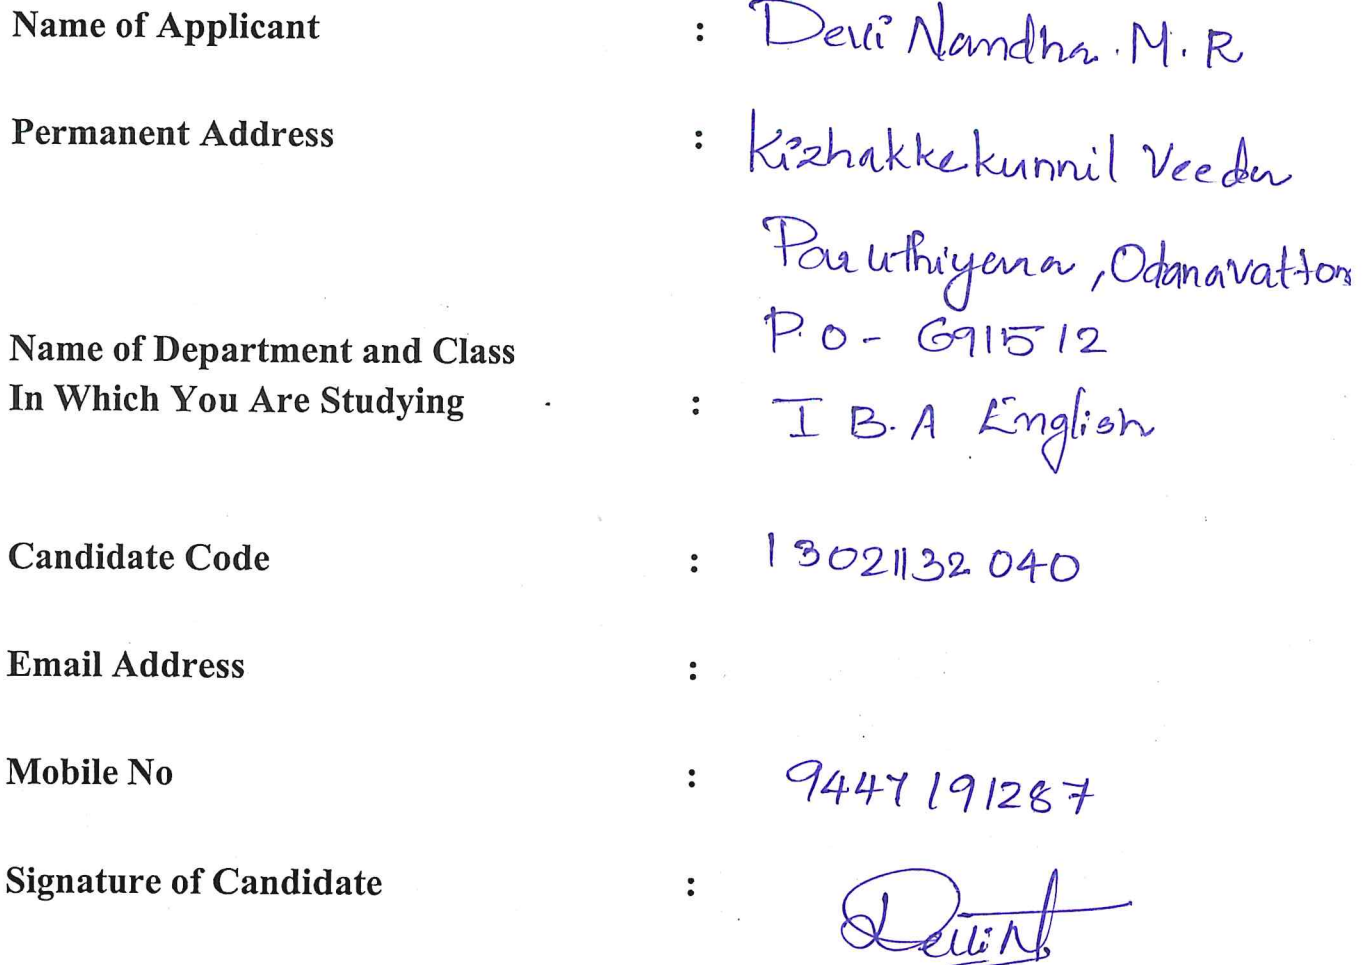 Name of Applicant : Devi Nandha. M. R
Permanent Address : Kizhakkekunnil Veedu
Paruthiyara, Odanavattom
P.O - 691512
Name of Department and Class
In Which You Are Studying : I B.A English
Candidate Code : 13021132040
Email Address :
Mobile No : 9447191287
Signature of Candidate : Devi N